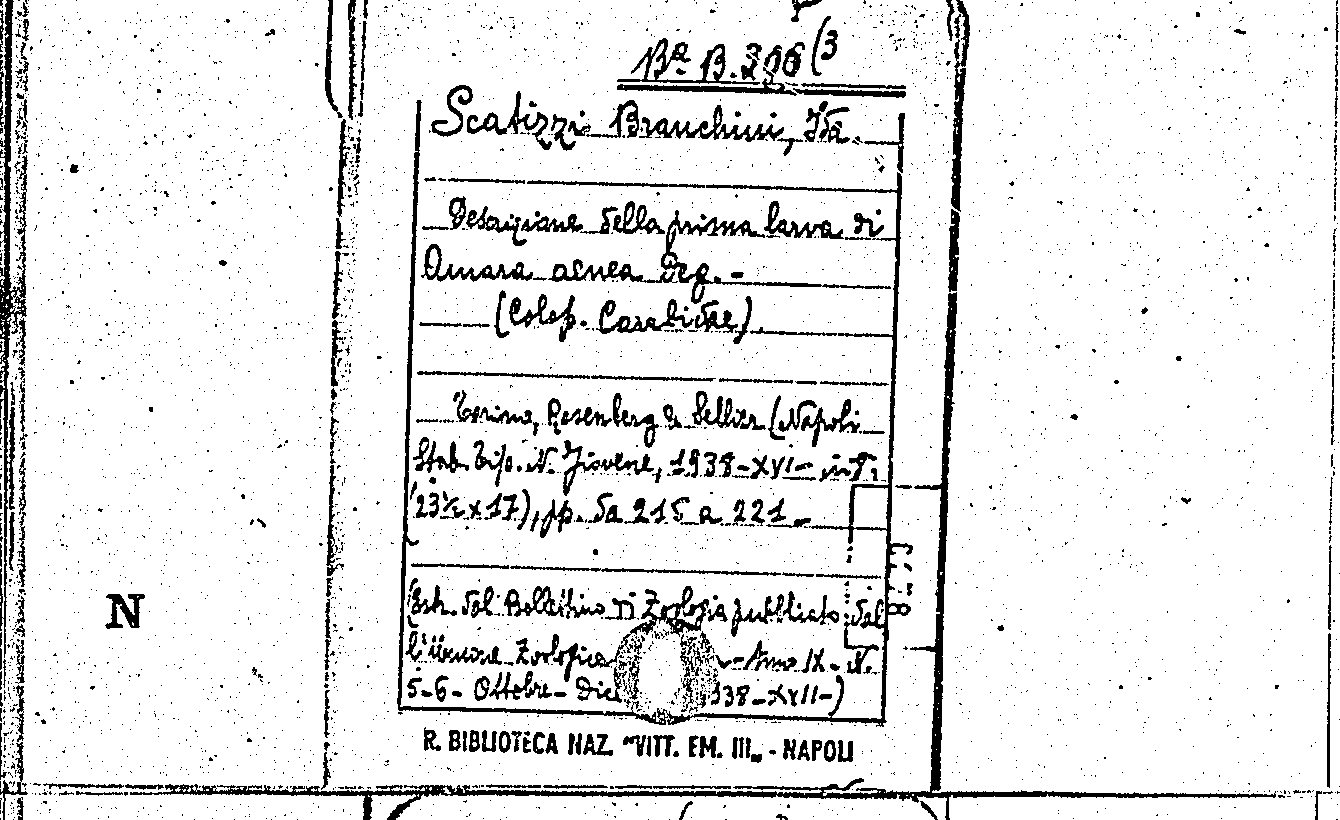 Bª B. 206 (3
Scatizzi Branchini, Ida.
Descrizione della prima larva di
Amara aenea Deg. -
(Colep. Carabidae).
Torino, Rosenberg & Sellier (Napoli
Stab. Tip. N. Jovene, 1938-XVI- in 8.
(23½ x 17), pp. da 215 a 221 -
(Estr. dal Bollettino di Zoologia pubblicato dal
l'Unione Zoologica -Anno IX- N.
5-6- Ottobre- Dic 938-XVII-)
N
R. BIBLIOTECA NAZ. "VITT. EM. III„ - NAPOLI